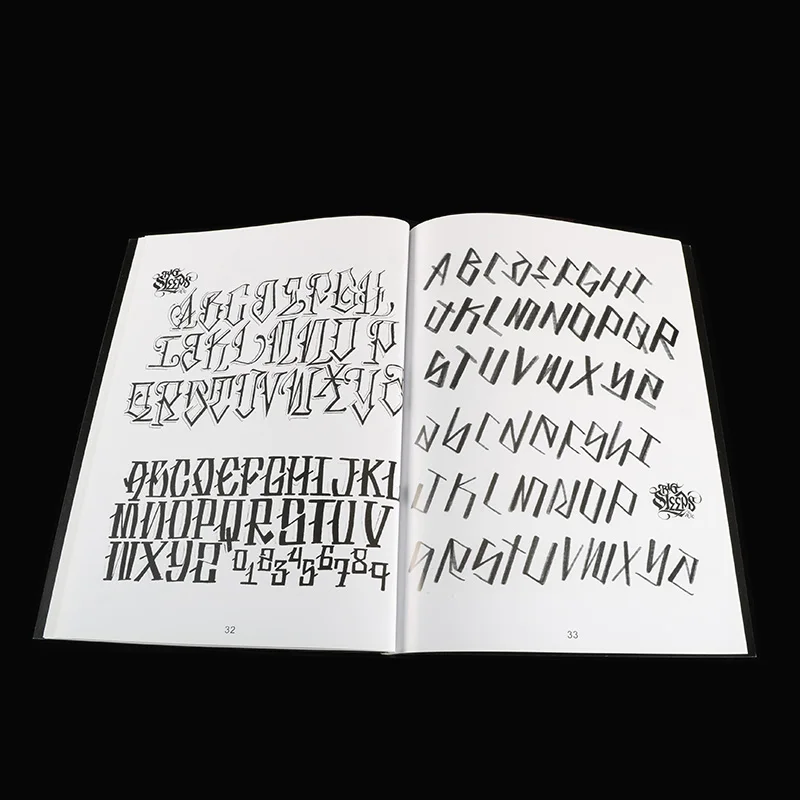 BIG
SLEEPS
ABCDEFGH
IJKLMNO P
QRSTUVWXYZ
ABCDEFGHIJKL
MNOPQRSTUV
WXYZ 0123456789
32
ABCDEFGHI
JKLMNOPQR
STUVWXYZ
abcdefghi
JKLMNOP
BIG
SLEEPS
qRSTUVWXYZ
33